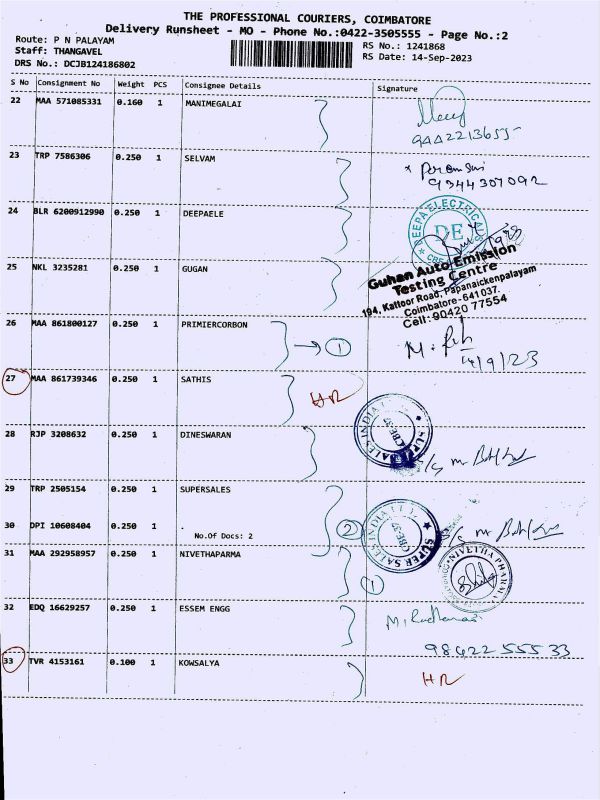 THE PROFESSIONAL COURIERS, COIMBATORE
Delivery Runsheet - MO - Phone No.:0422-3505555 - Page No.:2
Route: P N PALAYAM
Staff: THANGAVEL
DRS No.: DCJB124186802
RS No.: 1241868
RS Date: 14-Sep-2023
S No Consignment No Weight PCS Consignee Details Signature
22 MAA 571085331 0.160 1 MANIMEGALAI
9442213655
23 TRP 7586306 0.250 1 SELVAM
9344307092
24 BLR 6200912990 0.250 1 DEEPAELE
DEEPA ELECTRICALS
DE
CBE
25 NKL 3235281 0.250 1 GUGAN
Guhan Auto Emission
Testing Centre
194, Kattoor Road, Papanaickenpalayam
Coimbatore-641 037.
Cell: 90420 77554
26 MAA 861800127 0.250 1 PRIMIERCORBON
1
14/9/23
27 MAA 861739346 0.250 1 SATHIS
HR
28 RJP 3208632 0.250 1 DINESWARAN
SUPER SALES INDIA
CBE-37
29 TRP 2505154 0.250 1 SUPERSALES
30 DPI 10608404 0.250 1 .
No.Of Docs: 2
2
SUPER SALES INDIA
CBE-37
31 MAA 292958957 0.250 1 NIVETHAPARMA
1
32 EDQ 16629257 0.250 1 ESSEM ENGG
98422 55533
33 TVR 4153161 0.100 1 KOWSALYA
HR